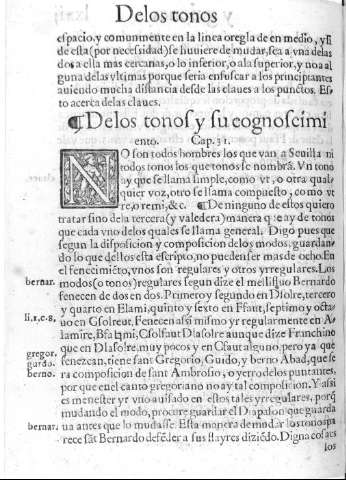 De los tonos
espacio, y comunmente en la linea o regla de en medio, y si
de esta (por necessidad) se huuiere de mudar, sea a vna delas
dos a ella mas cercanas, o lo inferior, o ala superior, y no a al
guna delas vltimas porque seria enfuscar a los principiantes
auiendo mucha distancia desde las claues a los punctos. Es-
to acerca delas claues.
¶De los tonos y su cognoscimi
ento. Cap. 31.
NO son todos hombres los que van a Seuilla ni
todos tonos los que tonos se nombrã. Vn tono
ay que se llama simple, como vt, o otra qual
quier voz, otro se llama compuesto, como vt
re, o re mi, &c. ¶De ninguno de estos quiero
tratar sino dela tercera (y valedera) manera que ay de tonos
que cada vno delos quales se llama general. Digo pues que
segun la disposicion y composicion delos modos, guardan
do lo que dellos esta escripto, no pueden ser mas de ocho. En
el fenecimiẽto, vnos son regulares y otros yrregulares. Los
bernar. modos (o tonos) regulares segun dize el mellifluo Bernardo
fenecen de dos en dos. Primero y segundo en Dsolre, tercero
y quarto en Elami, quinto y sexto en Ffaut, septimo y octa
li. 1, c. 8, uo en Gsolreut. Fenecen assi mismo yrregularmente en A-
lamire, Bfa♮mi, Csolfaut Dlasolre aunque dize Franchino
que en Dlasolre muy pocos y en Cfaut alguno. pero ya que
gregor. fenezcan, tiene sant Gregorio, Guido, y berno Abad, que se
guido.
berno. ra composicion de sant Ambrosio, o yerro delos puntantes,
por que en el canto gregoriano no ay tal composicion. Y assi
es menester yr vno auisado en estos tales yrregulares, porq̃
mudando el modo, procure guardar el Diapason que guarda
bernar. ua antes que lo mudasse. Esta manera de mudar los tonos pa
rece sãt Bernardo defẽder a sus frayres diziẽdo. Digna cosa es
los